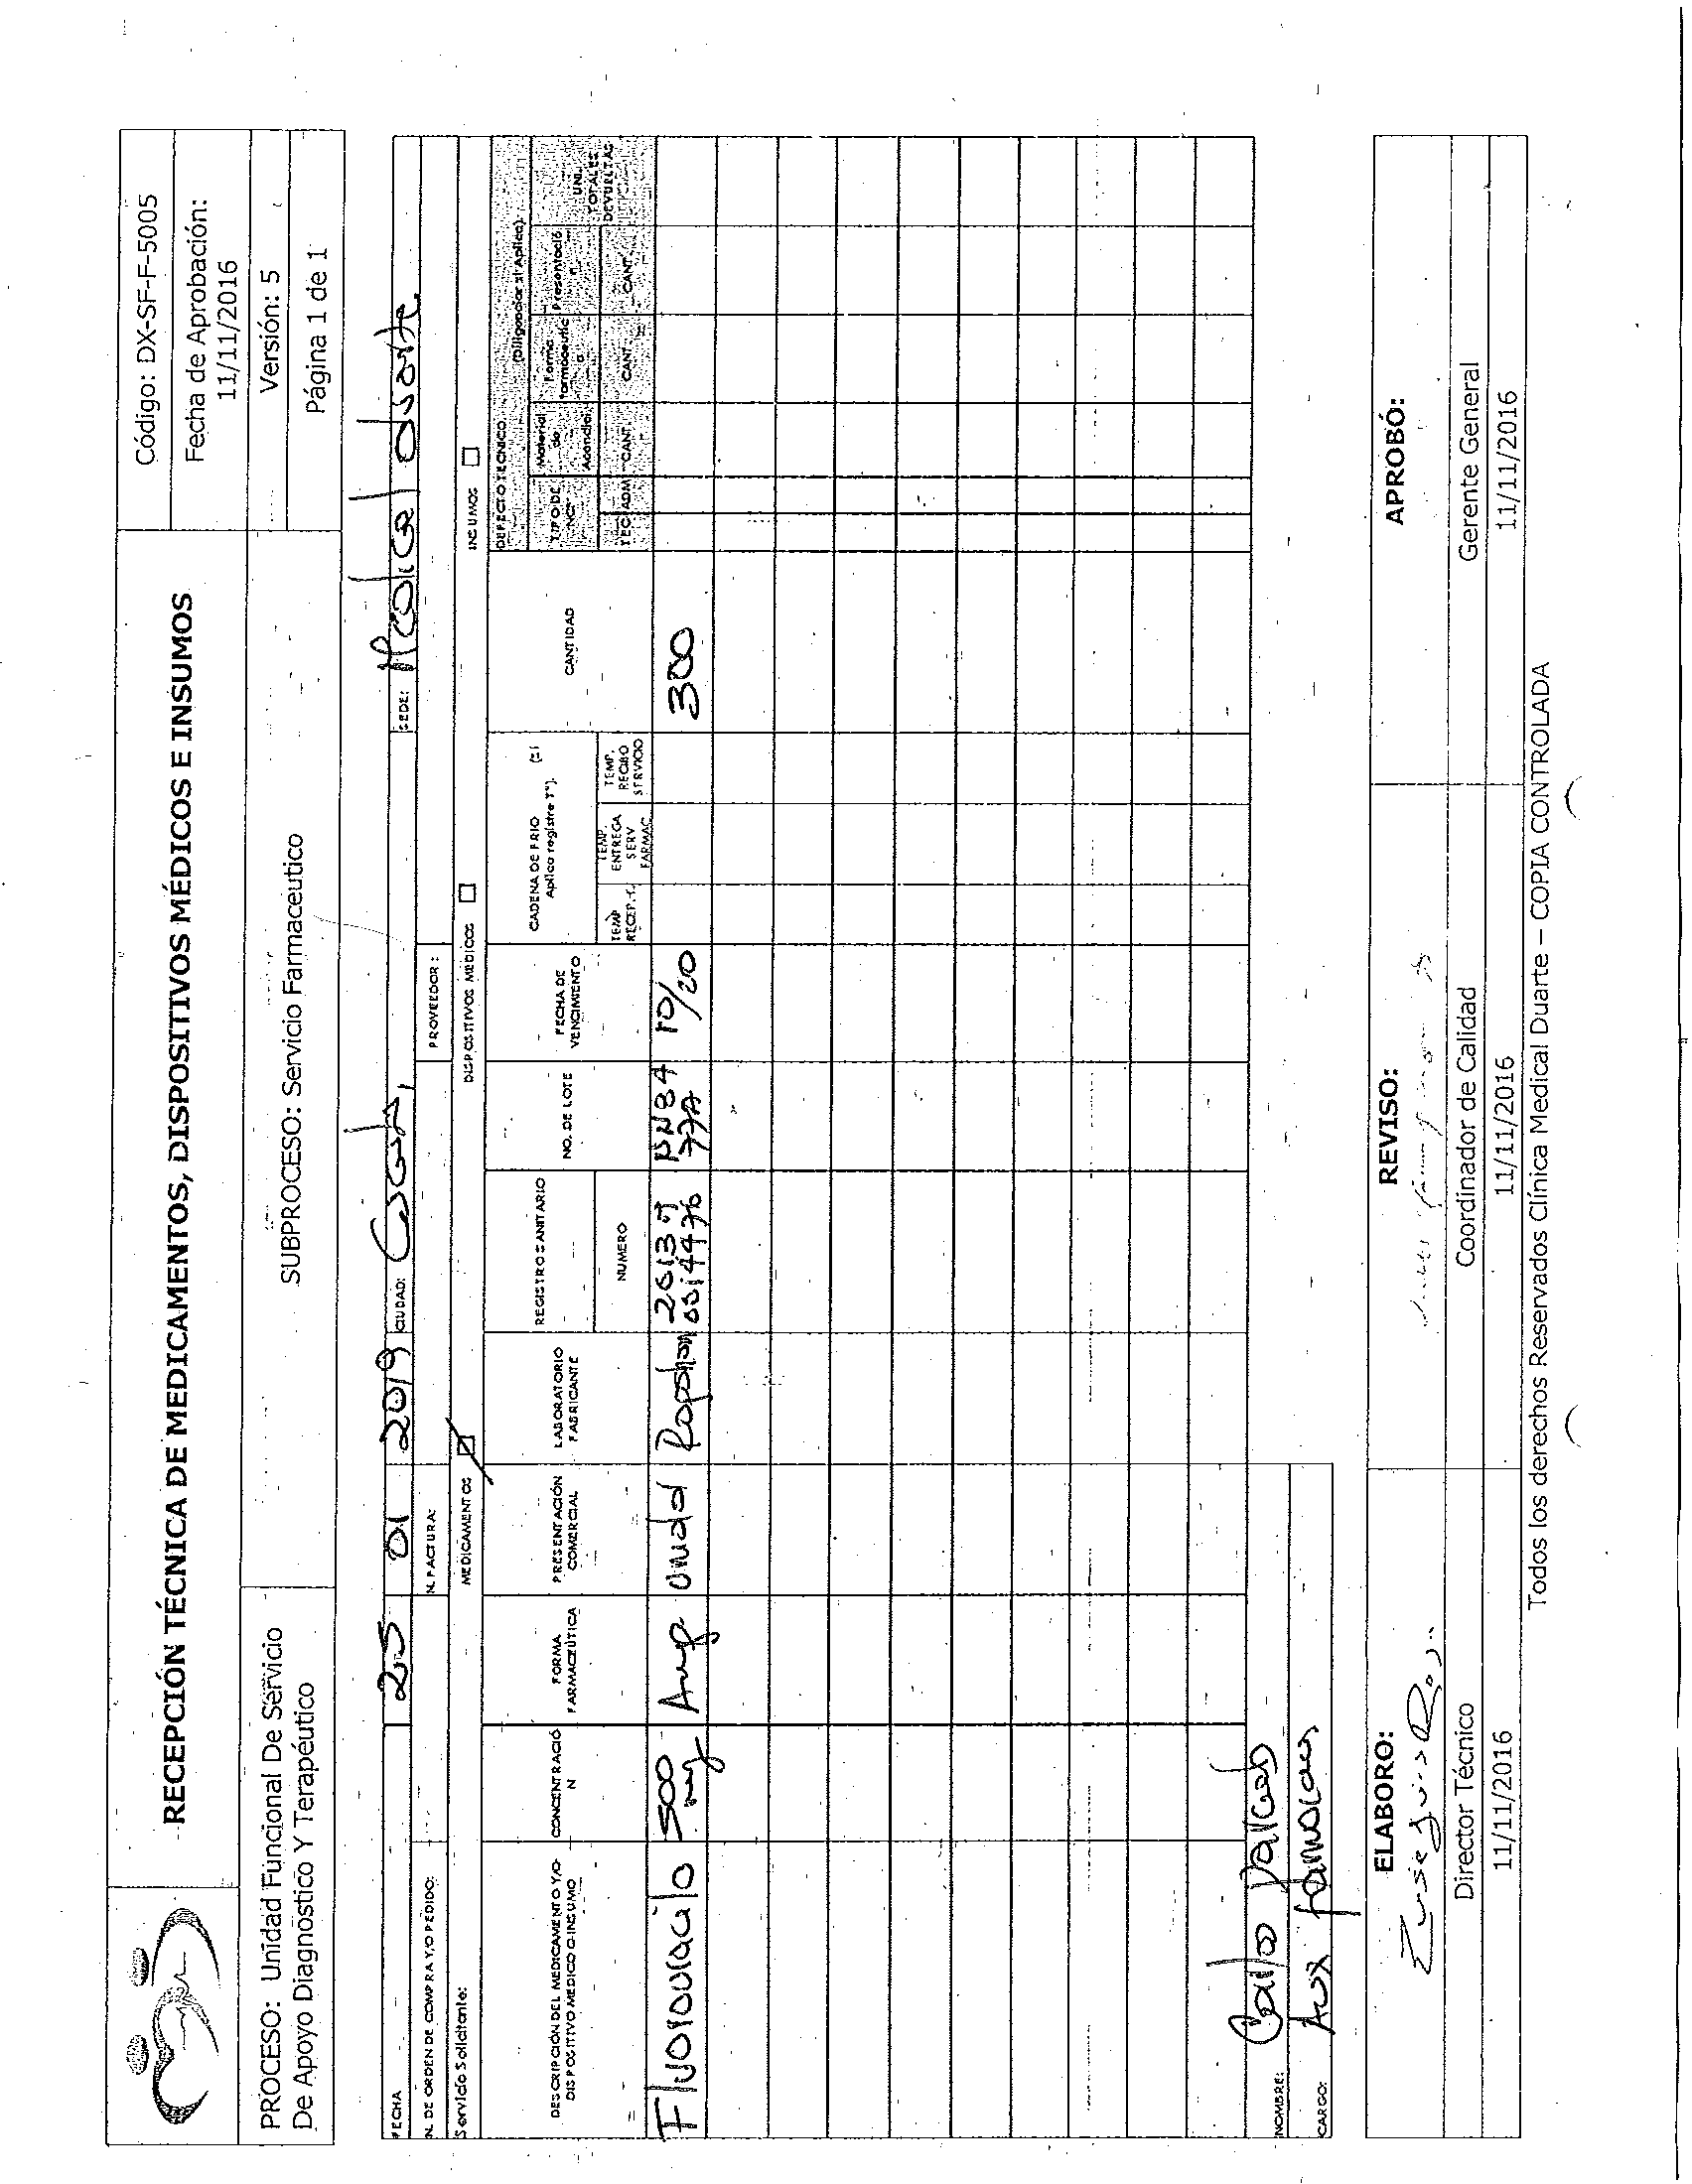 RECEPCIÓN TÉCNICA DE MEDICAMENTOS, DISPOSITIVOS MÉDICOS E INSUMOS
Código: DX-SF-F-5005
Fecha de Aprobación:
11/11/2016
PROCESO: Unidad Funcional De Servicio
De Apoyo Diagnostico Y Terapéutico
SUBPROCESO: Servicio Farmaceutico
Versión: 5
Página 1 de 1
FECHA 25 01 2019 CIUDAD: Cucuta SEDE: Medical duarte
N. DE ORDEN DE COMPRA Y/O PEDIDO: N. FACTURA: PROVEEDOR:
Servicio Solicitante: MEDICAMENTOS DISPOSITIVOS MEDICOS INSUMOS
DESCRIPCIÓN DEL MEDICAMENTO Y/O
DISPOSITIVO MEDICO O INSUMO
CONCENTRACIÓ
N
FORMA
FARMACEÚTICA
PRESENTACIÓN
COMERCIAL
LABORATORIO
FABRICANTE
REGISTRO SANITARIO
NUMERO
NO. DE LOTE
FECHA DE
VENCIMIENTO
CADENA DE FRIO (si
Aplica registre T°).
TEMP
RECEP.T.
TEMP.
ENTREGA
SERV
FARMAC
TEMP.
RECIBO
SERVICIO
CANTIDAD
DEFECTO TECNICO
(Diligenciar si Aplica)
TIPO DE
NC
TEC ADM
Material
de
Acondici.
CANT
Forma
farmaceutic
a
CANT
Presentació
n
CANT
UNI.
TOTALES
DEVUELTAS
Fluorouracilo 500 mg Amp unidad Ropsohn 10/20 300
NOMBRE: Carlos
CARGO: Aux farmacia
ELABORO: REVISO: APROBÓ:
Director Técnico Coordinador de Calidad Gerente General
11/11/2016 11/11/2016 11/11/2016
Todos los derechos Reservados Clínica Medical Duarte – COPIA CONTROLADA